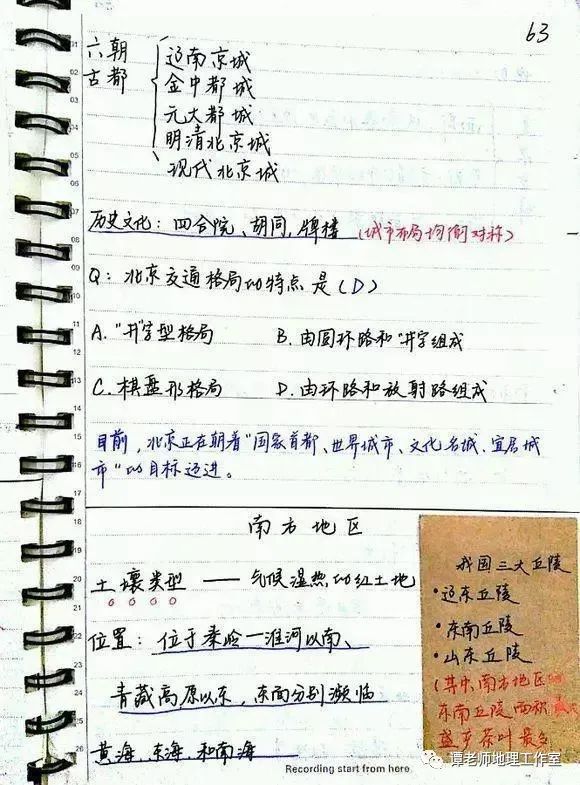 63
六朝古都
辽南京城
金中都城
元大都城
明清北京城
现代北京城
历史文化：四合院、胡同、牌楼（城市布局均衡对称）
Q：北京交通格局的特点是（D）
A."井"字型格局 B.由圆环路和"井"字组成
C.棋盘形格局 D.由环路和放射路组成
目前，北京正在朝着"国家首都、世界城市、文化名城、宜居城
市"的目标迈进。
南方地区
土壤类型——气候湿热的红土地
位置：位于秦岭—淮河以南、
青藏高原以东，东面分别濒临
黄海、东海、和南海
我国三大丘陵
·辽东丘陵
·东南丘陵
·山东丘陵
（其中，南方地区的
东南丘陵面积最
盛产茶叶最多
Recording start from here
谭老师地理工作室